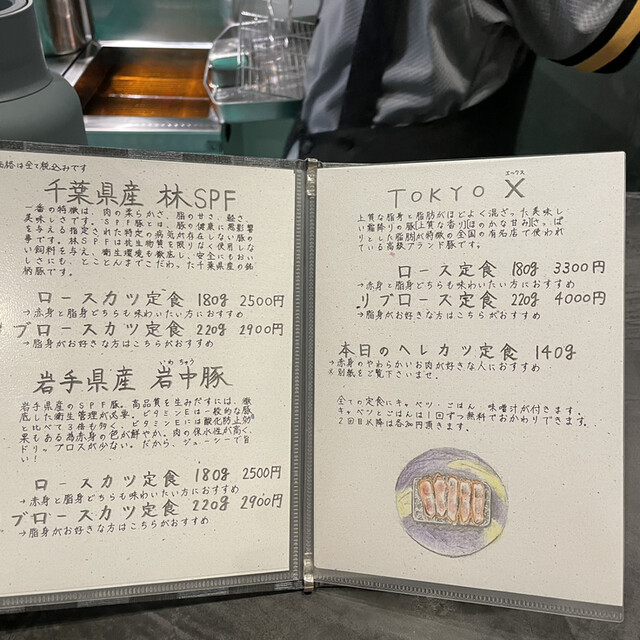 価格は全て税込みです
千葉県産 林SPF
一番の特徴は、肉の柔らかさ、脂の甘さ、軽さ、
美味しさです。SPF豚とは、豚の健康に悪影響
を与える指定された特定の病気が存在しない豚の
事です。林SPFは抗生物質を限りなく使用しな
い飼料を与え、衛生環境も徹底し、安全にもおい
しさにも、とことんまでこだわった千葉県産の銘
柄豚です。
ロースカツ定食 180g 2500円
→赤身と脂身どちらも味わいたい方におすすめ
ブロースカツ定食 220g 2900円
→脂身がお好きな方はこちらがおすすめ
いわちゅう
岩手県産 岩中豚
岩手県産のSPF豚。高品質を生みだすには、徹
底した衛生管理が必要。ビタミンEは一般的な豚
と比べて3倍も多く、ビタミンEには酸化防止効
果もある為赤身の色が鮮やか。肉の保水性が高く、
ドリップロスが少ない。だから、ジューシーで旨
い!
ロースカツ定食 180g 2500円
→赤身と脂身どちらも味わいたい方におすすめ
ブロースカツ定食 220g 2900円
→脂身がお好きな方はこちらがおすすめ
エックス
TOKYO X
上質な脂身と脂肪がほどよく混ざった美味し
い霜降りの豚[上質な香り][ほのかな甘み][さっぱ
りとした脂肪]が特徴の全国の有名店で使われ
ている高級ブランド豚です。
ロース定食 180g 3300円
→赤身と脂身どちらも味わいたい方におすすめ
リブロース定食 220g 4000円
→脂身がお好きな方はこちらがおすすめ
本日のヘレカツ定食 140g
→赤身のやわらかいお肉が好きな人におすすめ
※別紙をご覧下さいませ。
全ての定食にキャベツ・ごはん 味噌汁が付きます。
キャベツとごはんは1回ずつ無料でおかわりできます。
2回目以降は各200円頂きます。